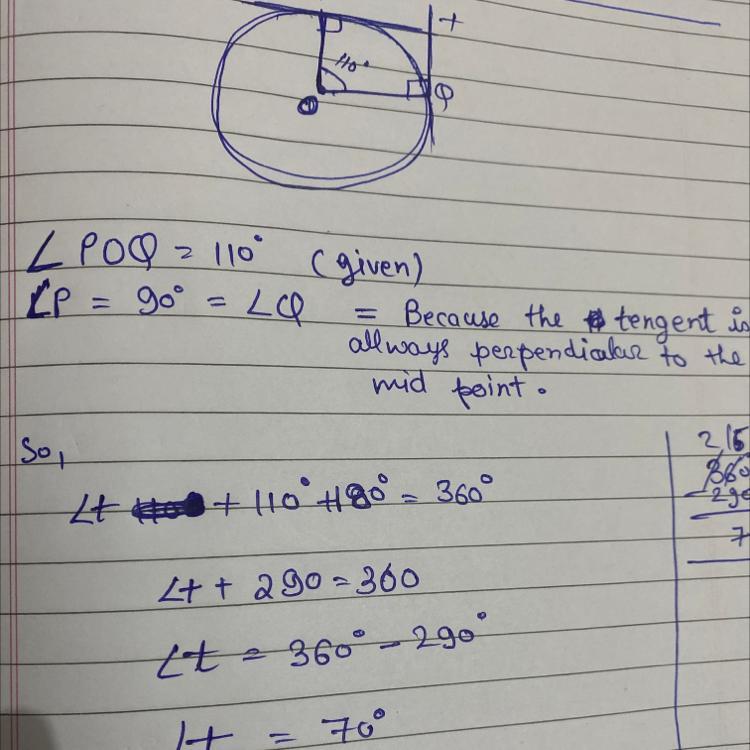 t
110°
Q
O
∠POQ = 110° (given)
∠P = 90° = ∠Q = Because the tengent is
allways perpendicular to the
mid point.
So,
∠t + 110° + 180° = 360°
∠t + 290 = 360
∠t = 360° - 290°
∠t = 70°
2 15
360
- 290
7